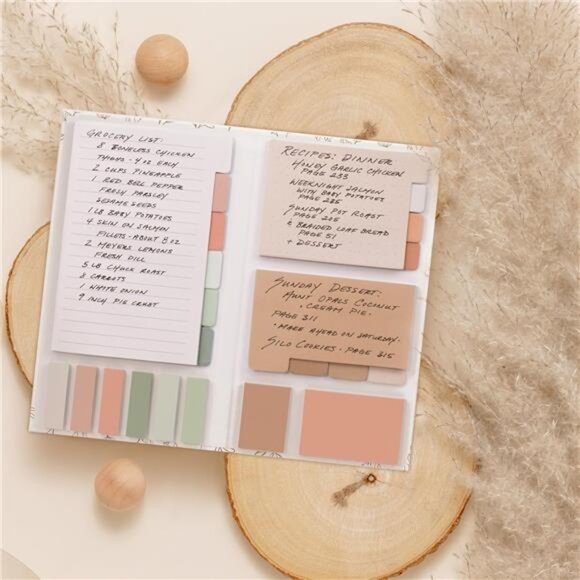 GROCERY LIST:
8 BONELESS CHICKEN
THIGHS - 4 OZ EACH
2 CUPS PINEAPPLE
1 RED BELL PEPPER
FRESH PARSLEY
SESAME SEEDS
1 LB BABY POTATOES
4 SKIN ON SALMON
FILLETS - ABOUT 8 OZ
2 MEYERS LEMONS
FRESH DILL
5 LB CHUCK ROAST
8 CARROTS
1 WHITE ONION
9 INCH PIE CRUST
RECIPES: DINNER
HONEY GARLIC CHICKEN
PAGE 233
WEEKNIGHT SALMON
WITH BABY POTATOES
PAGE 225
SUNDAY POT ROAST
PAGE 205
& BRAIDED LOAF BREAD
PAGE 51
+ DESSERT
SUNDAY DESSERT:
AUNT OPALS COCONUT
· CREAM PIE ·
PAGE 311
· MAKE AHEAD ON SATURDAY ·
SILO COOKIES · PAGE 315